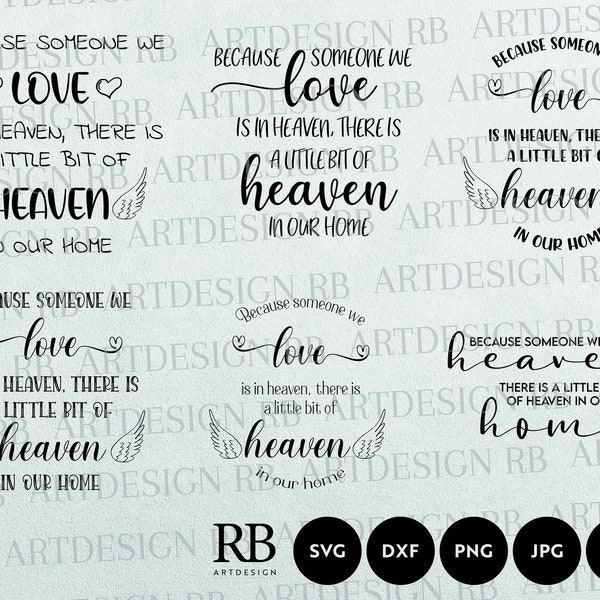 SE SOMEONE WE
LOVE
HEAVEN, THERE IS
LITTLE BIT OF
HEAVEN
N OUR HOME
BECAUSE SOMEONE WE
love
IS IN HEAVEN, THERE IS
A LITTLE BIT OF
heaven
IN OUR HOME
BECAUSE SOMEON
love
IS IN HEAVEN, THE
A LITTLE BIT O
heaven
IN OUR HOM
USE SOMEONE WE
love
HEAVEN, THERE IS
LITTLE BIT OF
heaven
IN OUR HOME
Because someone we
love
is in heaven, there is
a little bit of
heaven
in our home
BECAUSE SOMEONE WE
heave
THERE IS A LITTLE
OF HEAVEN IN O
hom
ARTDESIGN RB
RB
ARTDESIGN
SVG
DXF
PNG
JPG